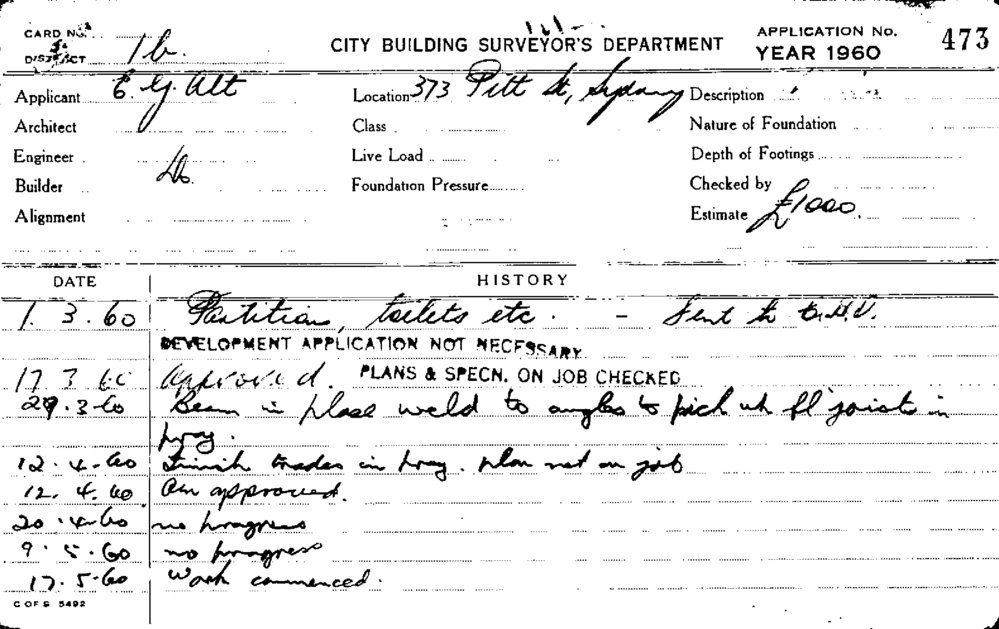 CARD No. 
DISTRICT 1b.
CITY BUILDING SURVEYOR'S DEPARTMENT
APPLICATION No. 473
YEAR 1960
Applicant E. G. Alt Location 373 Pitt St, Sydney Description
Architect Class Nature of Foundation
Engineer Live Load Depth of Footings
Builder Do. Foundation Pressure Checked by
Alignment Estimate £1000.
DATE HISTORY
1. 3. 60 Partitions, toilets etc. - Sent to
DEVELOPMENT APPLICATION NOT NECESSARY
17 3 60 Approved. PLANS & SPECN. ON JOB CHECKED
29. 3-60 Beam in place weld to angles to pick up fl joists in
prog.
12. 4-60 Finish trades in prog. plan not on job
12. 4. 60 approved.
20. 4-60 no progress
9. 5. 60 no progress
17. 5-60 Work commenced.
C OF S 5492